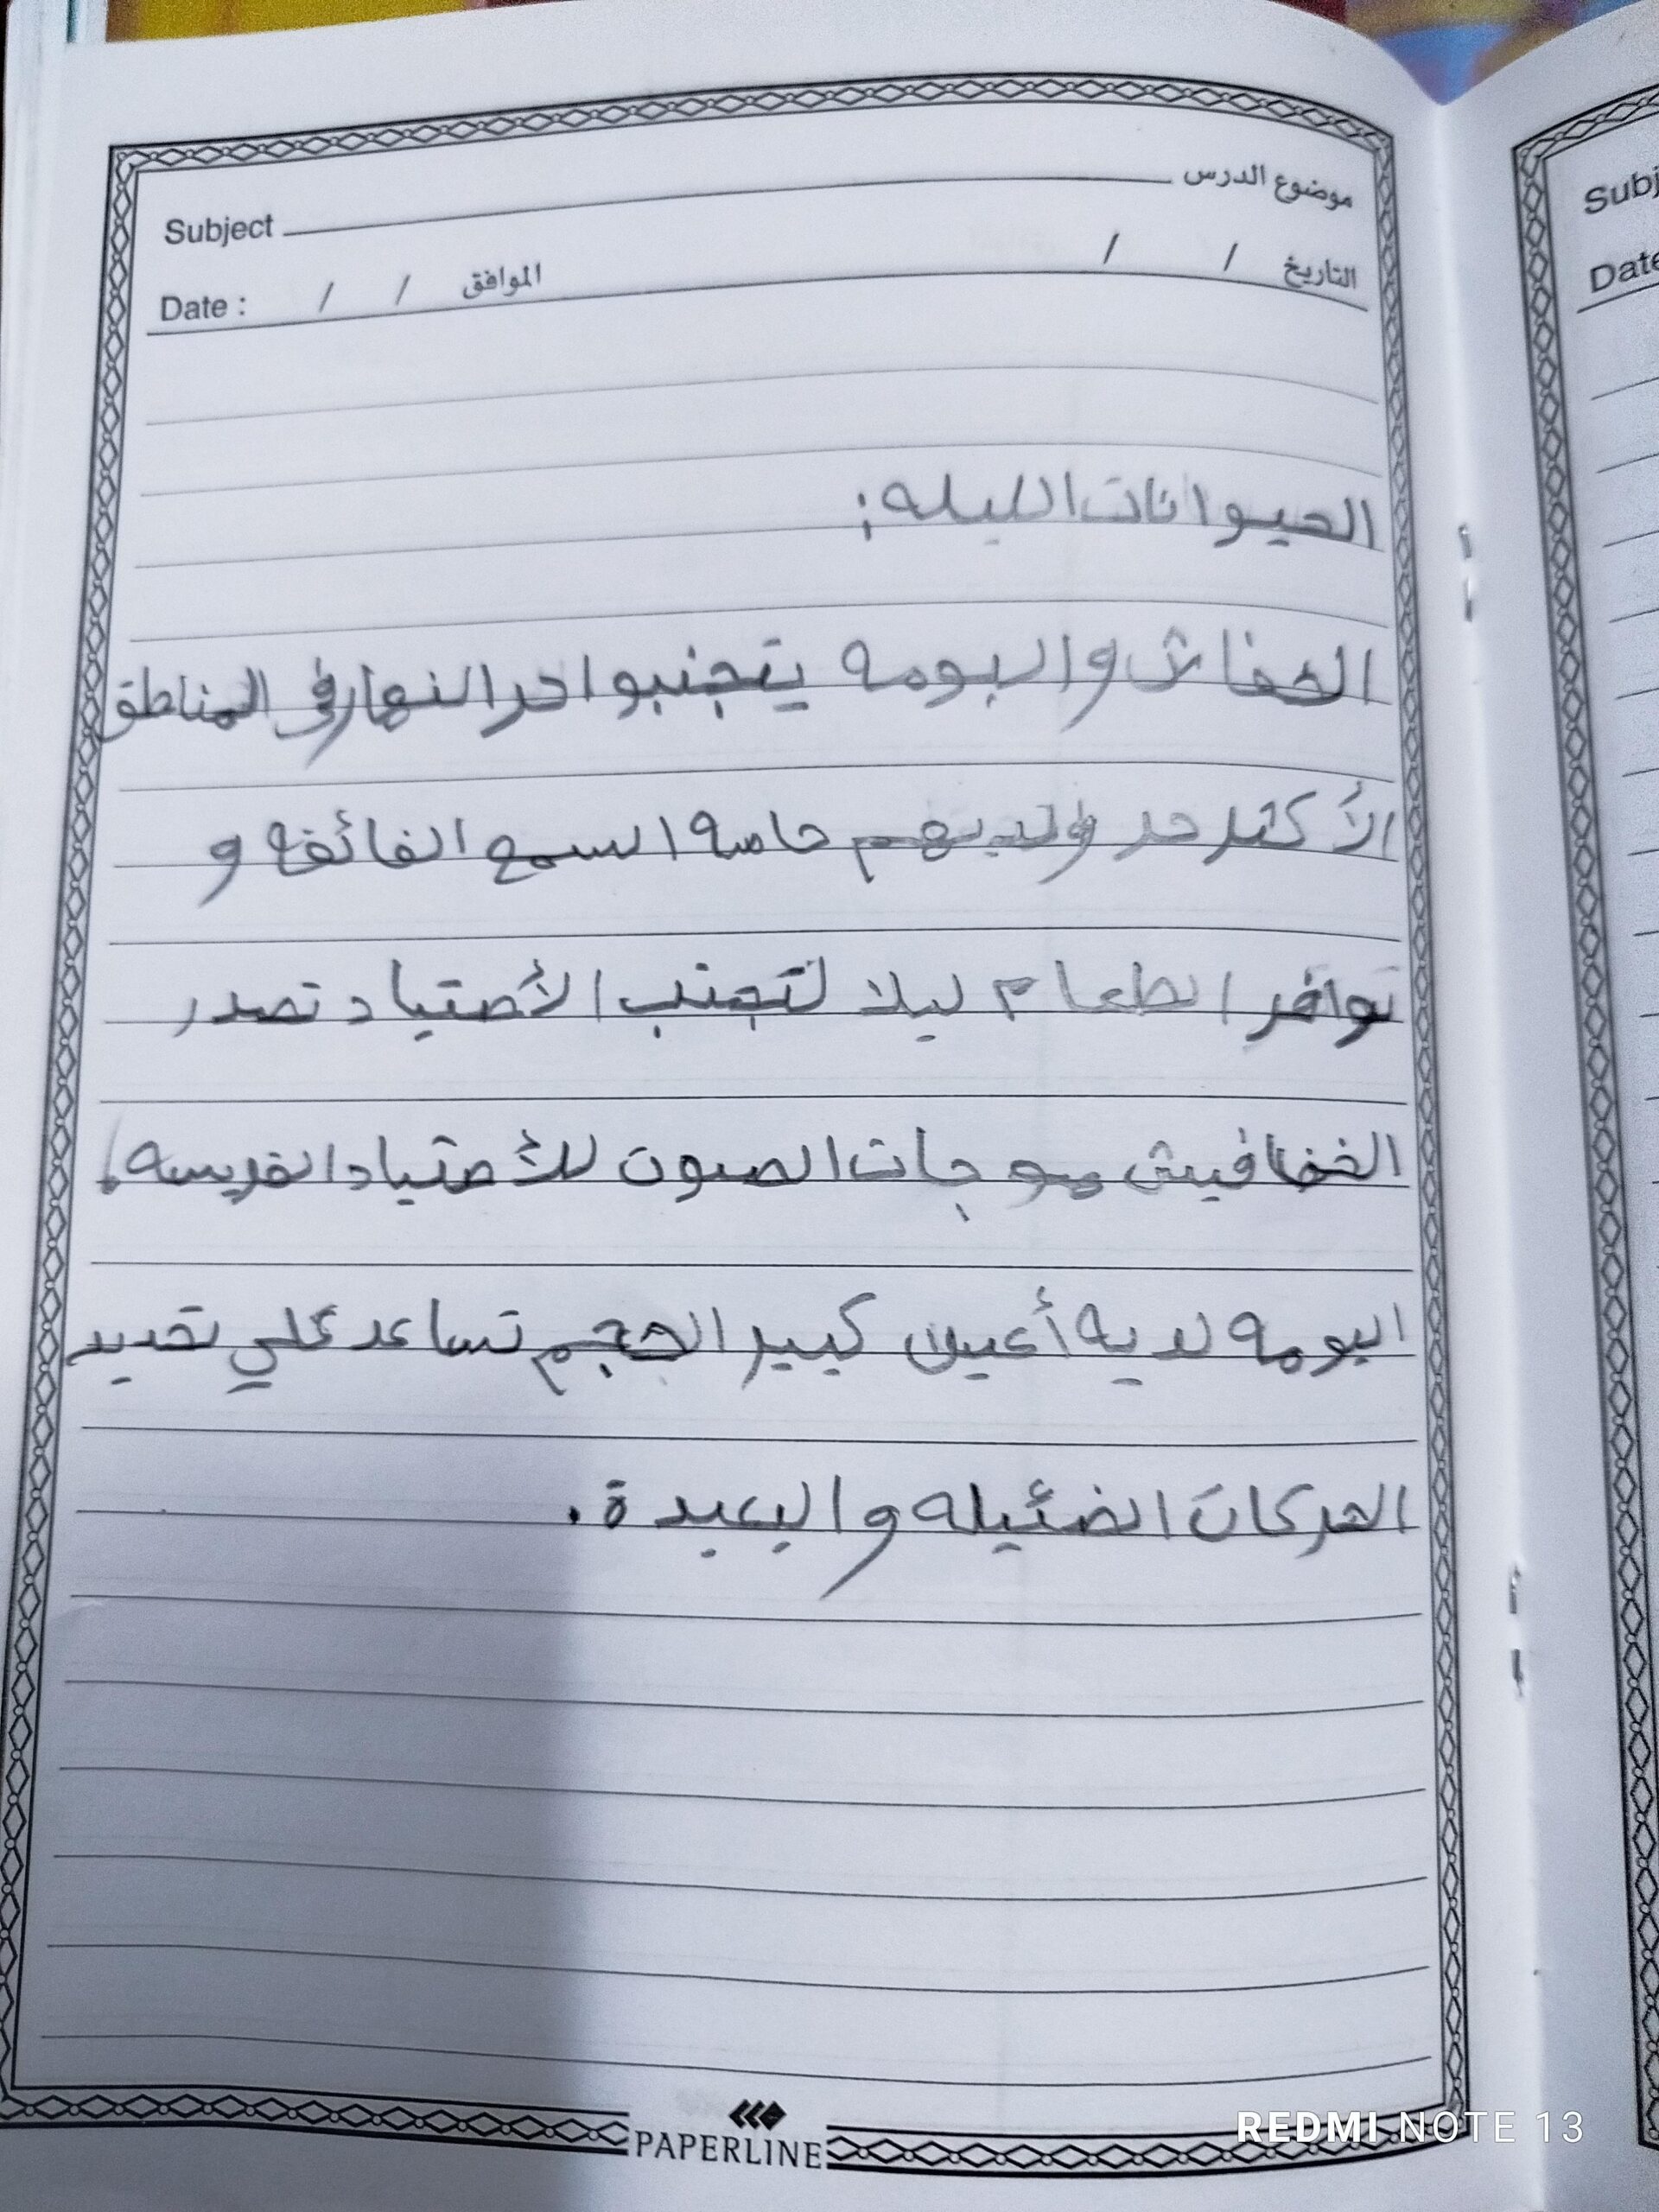 موضوع الدرس
Subject
التاريخ / /
Date : / / الموافق
الحيوانات الليله:
الخفاش واليومه يتجنبوا حر النهار في المناطق
الأكثر حر ولديهم حاصه السمع الفائقه و
توافر الطعام ليلا لتجنب الأصتياد تصدر
الخفافيش موجات الصوت للأصتياد الفريسه،
اليومه لديه أعين كبير الحجم تساعد علي تحديد
الحركات الضئيله والبعيدة.
PAPERLINE
Subj
Date
REDMI NOTE 13